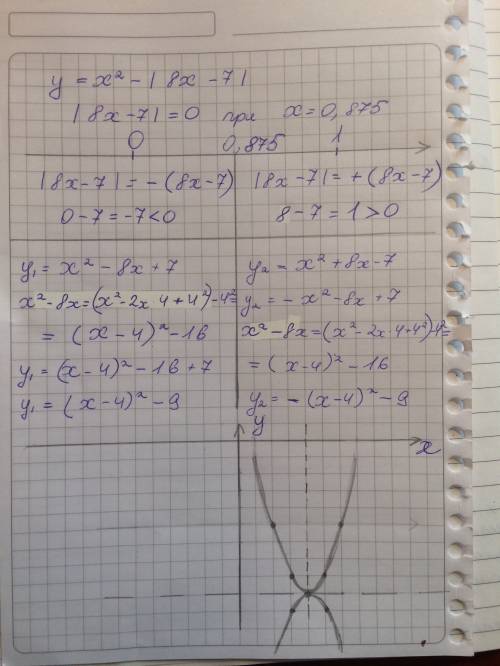 y = x² - | 8x - 7 |
| 8x - 7 | = 0 при x = 0,875
0 0,875 1
|8x - 7| = - (8x - 7)
0 - 7 = -7 < 0
y₁ = x² - 8x + 7
x² - 8x = (x² - 2x 4 + 4²) - 4² =
= (x - 4)² - 16
y₁ = (x - 4)² - 16 + 7
y₁ = (x - 4)² - 9
|8x - 7| = + (8x - 7)
8 - 7 = 1 > 0
y₂ = x² + 8x - 7
y₂ = - x² - 8x + 7
x² - 8x = (x² - 2x 4 + 4²) - 4² =
= (x - 4)² - 16
y₂ = - (x - 4)² - 9
y
x